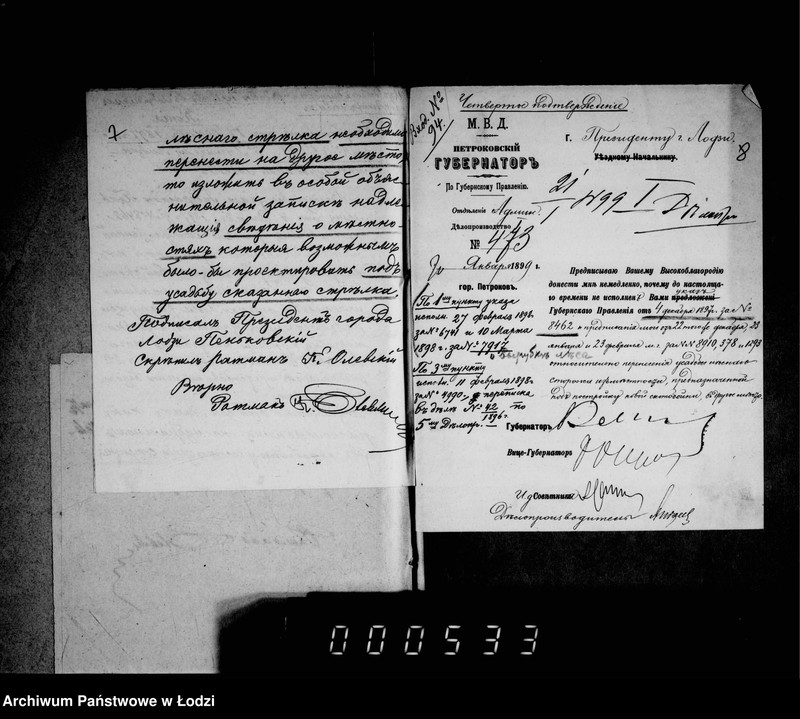 7
лѣснаго стрѣлка необходимо
перенести на другое мѣсто
то изложить въ особой объяс
нительной запискѣ надле
жащія свѣдѣнія о мѣстно
стяхъ которыя возможнымъ
было-бы проектировать подъ
усадьбу сказаннаго стрѣлка.
Подписалъ Президентъ города
Лодзи Пеньковскій
Скрѣпилъ Ратманъ К. Олевскій
Вѣрно
Ратманъ
Четвертое подтвержденіе
Вход. №
94.
М. В. Д.
ПЕТРОКОВСКІЙ
ГУБЕРНАТОРЪ
По Губернскому Правленію.
Отдѣленіе Админ.
Дѣлопроизводство I
№ 473
Января 1899 г.
гор. Петроковъ.
г. Президенту г. Лодзи.
Уѣздному Начальнику.
8
21/I 1899
По 1му пункту указа
исполн. 27 февраля 1898
за № 6741 и 10 Марта
1898 г. за № 7917
о вырубкѣ лѣса
По 3му пункту
исполн. 11 февраля 1898 г.
за № 4990, переписка
въ дѣлѣ № 42/1896 г. по
5му Дѣлопр.
Предписываю Вашему Высокоблагородію
донести мнѣ немедленно, почему до настояща-
го времени не исполненъ Вами предложеніе указъ
Губернскаго Правленія отъ 4 декабря 1897 г. за №
8462 и предписанія мои отъ 22 того же декабря, 23
января и 23 февраля м. г. за №№ 8910, 578 и 1293
относительно перенесенія усадьбы лѣснаго
сторожа изъ мѣстности, предназначенной
подъ постройку новой скотобойни, въ другое мѣсто.
Губернаторъ
Вице-Губернаторъ
И. д. Совѣтника
Дѣлопроизводитель
000533
Archiwum Państwowe w Łodzi